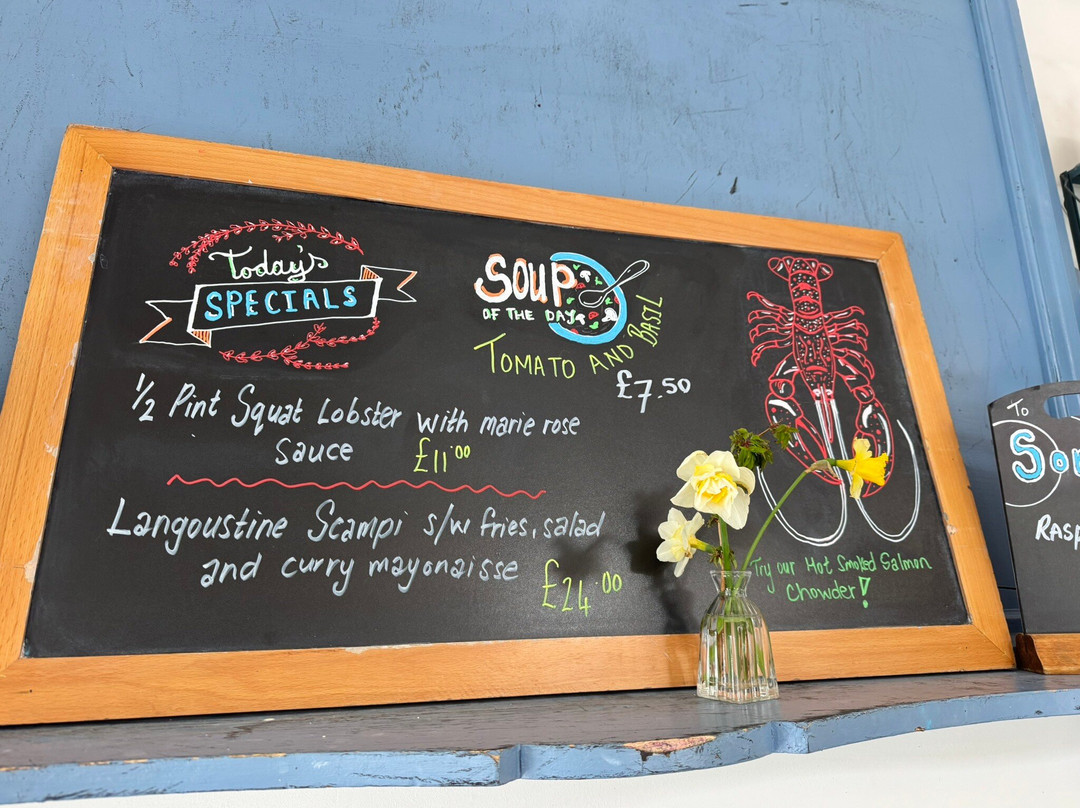 Today's
SPECIALS
1/2 Pint Squat Lobster with marie rose
Sauce £11.00
Langoustine Scampi s/w fries, salad
and curry mayonaisse £24.00
SOUP
OF THE DAY
TOMATO AND BASIL
£7.50
Try our Hot Smoked Salmon
Chowder!
To